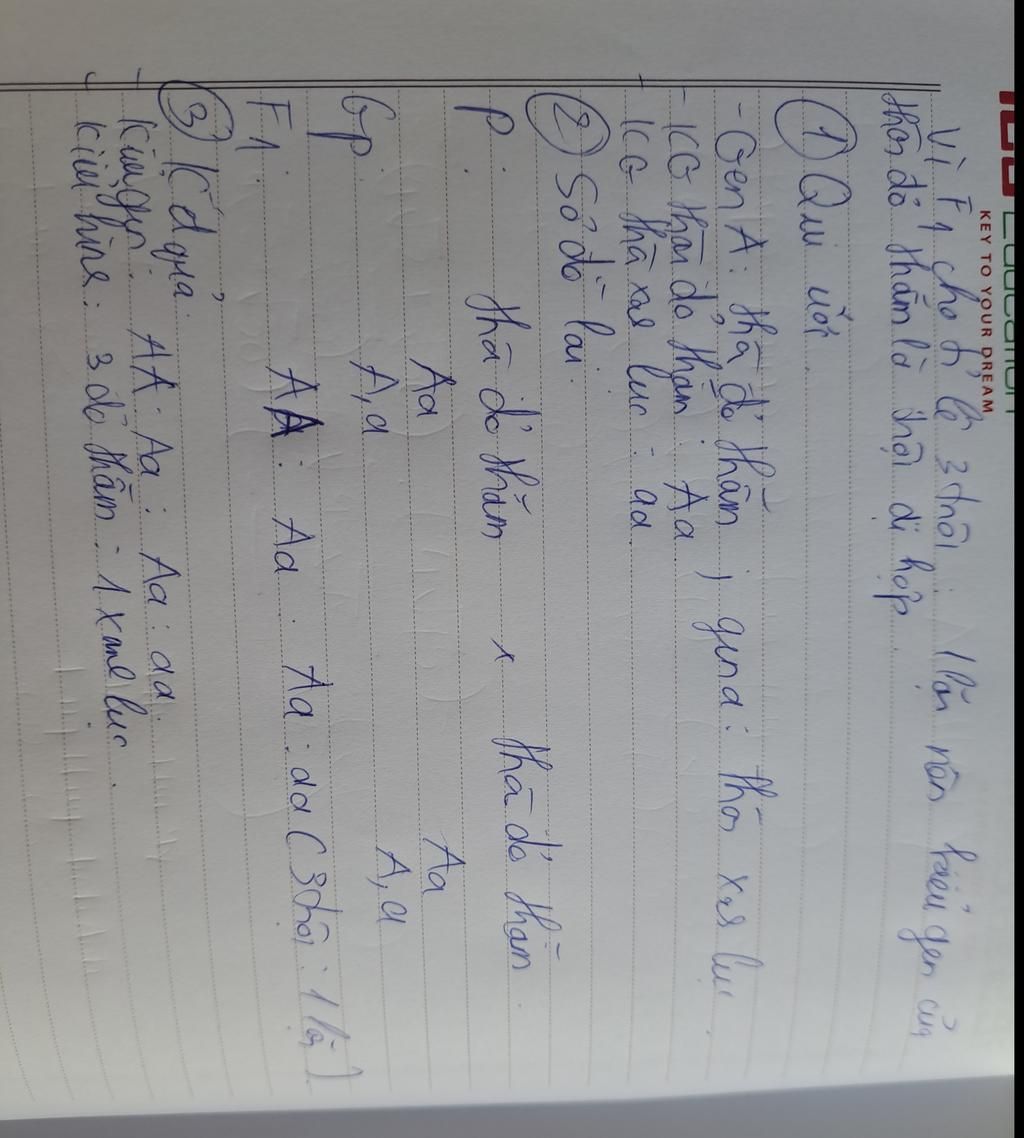 Education
KEY TO YOUR DREAM
Vì F1 cho tỉ lệ 3 trội : 1 lặn nên kiểu gen của
thân đỏ thẫm là trội dị hợp.
① Qui ước.
- Gen A: thân đỏ thẫm ; gen a: thân xanh lục.
- KG thân đỏ thẫm: Aa
- KG thân xanh lục: aa
② Sơ đồ lai.
P. thân đỏ thẫm x thân đỏ thẫm.
Aa Aa
Gp. A, a A, a
F1. AA : Aa : Aa : aa (3 trội : 1 lặn)
③ Kết quả.
- Kiểu gen: AA : Aa : Aa : aa.
- Kiểu hình: 3 đỏ thẫm : 1 xanh lục.